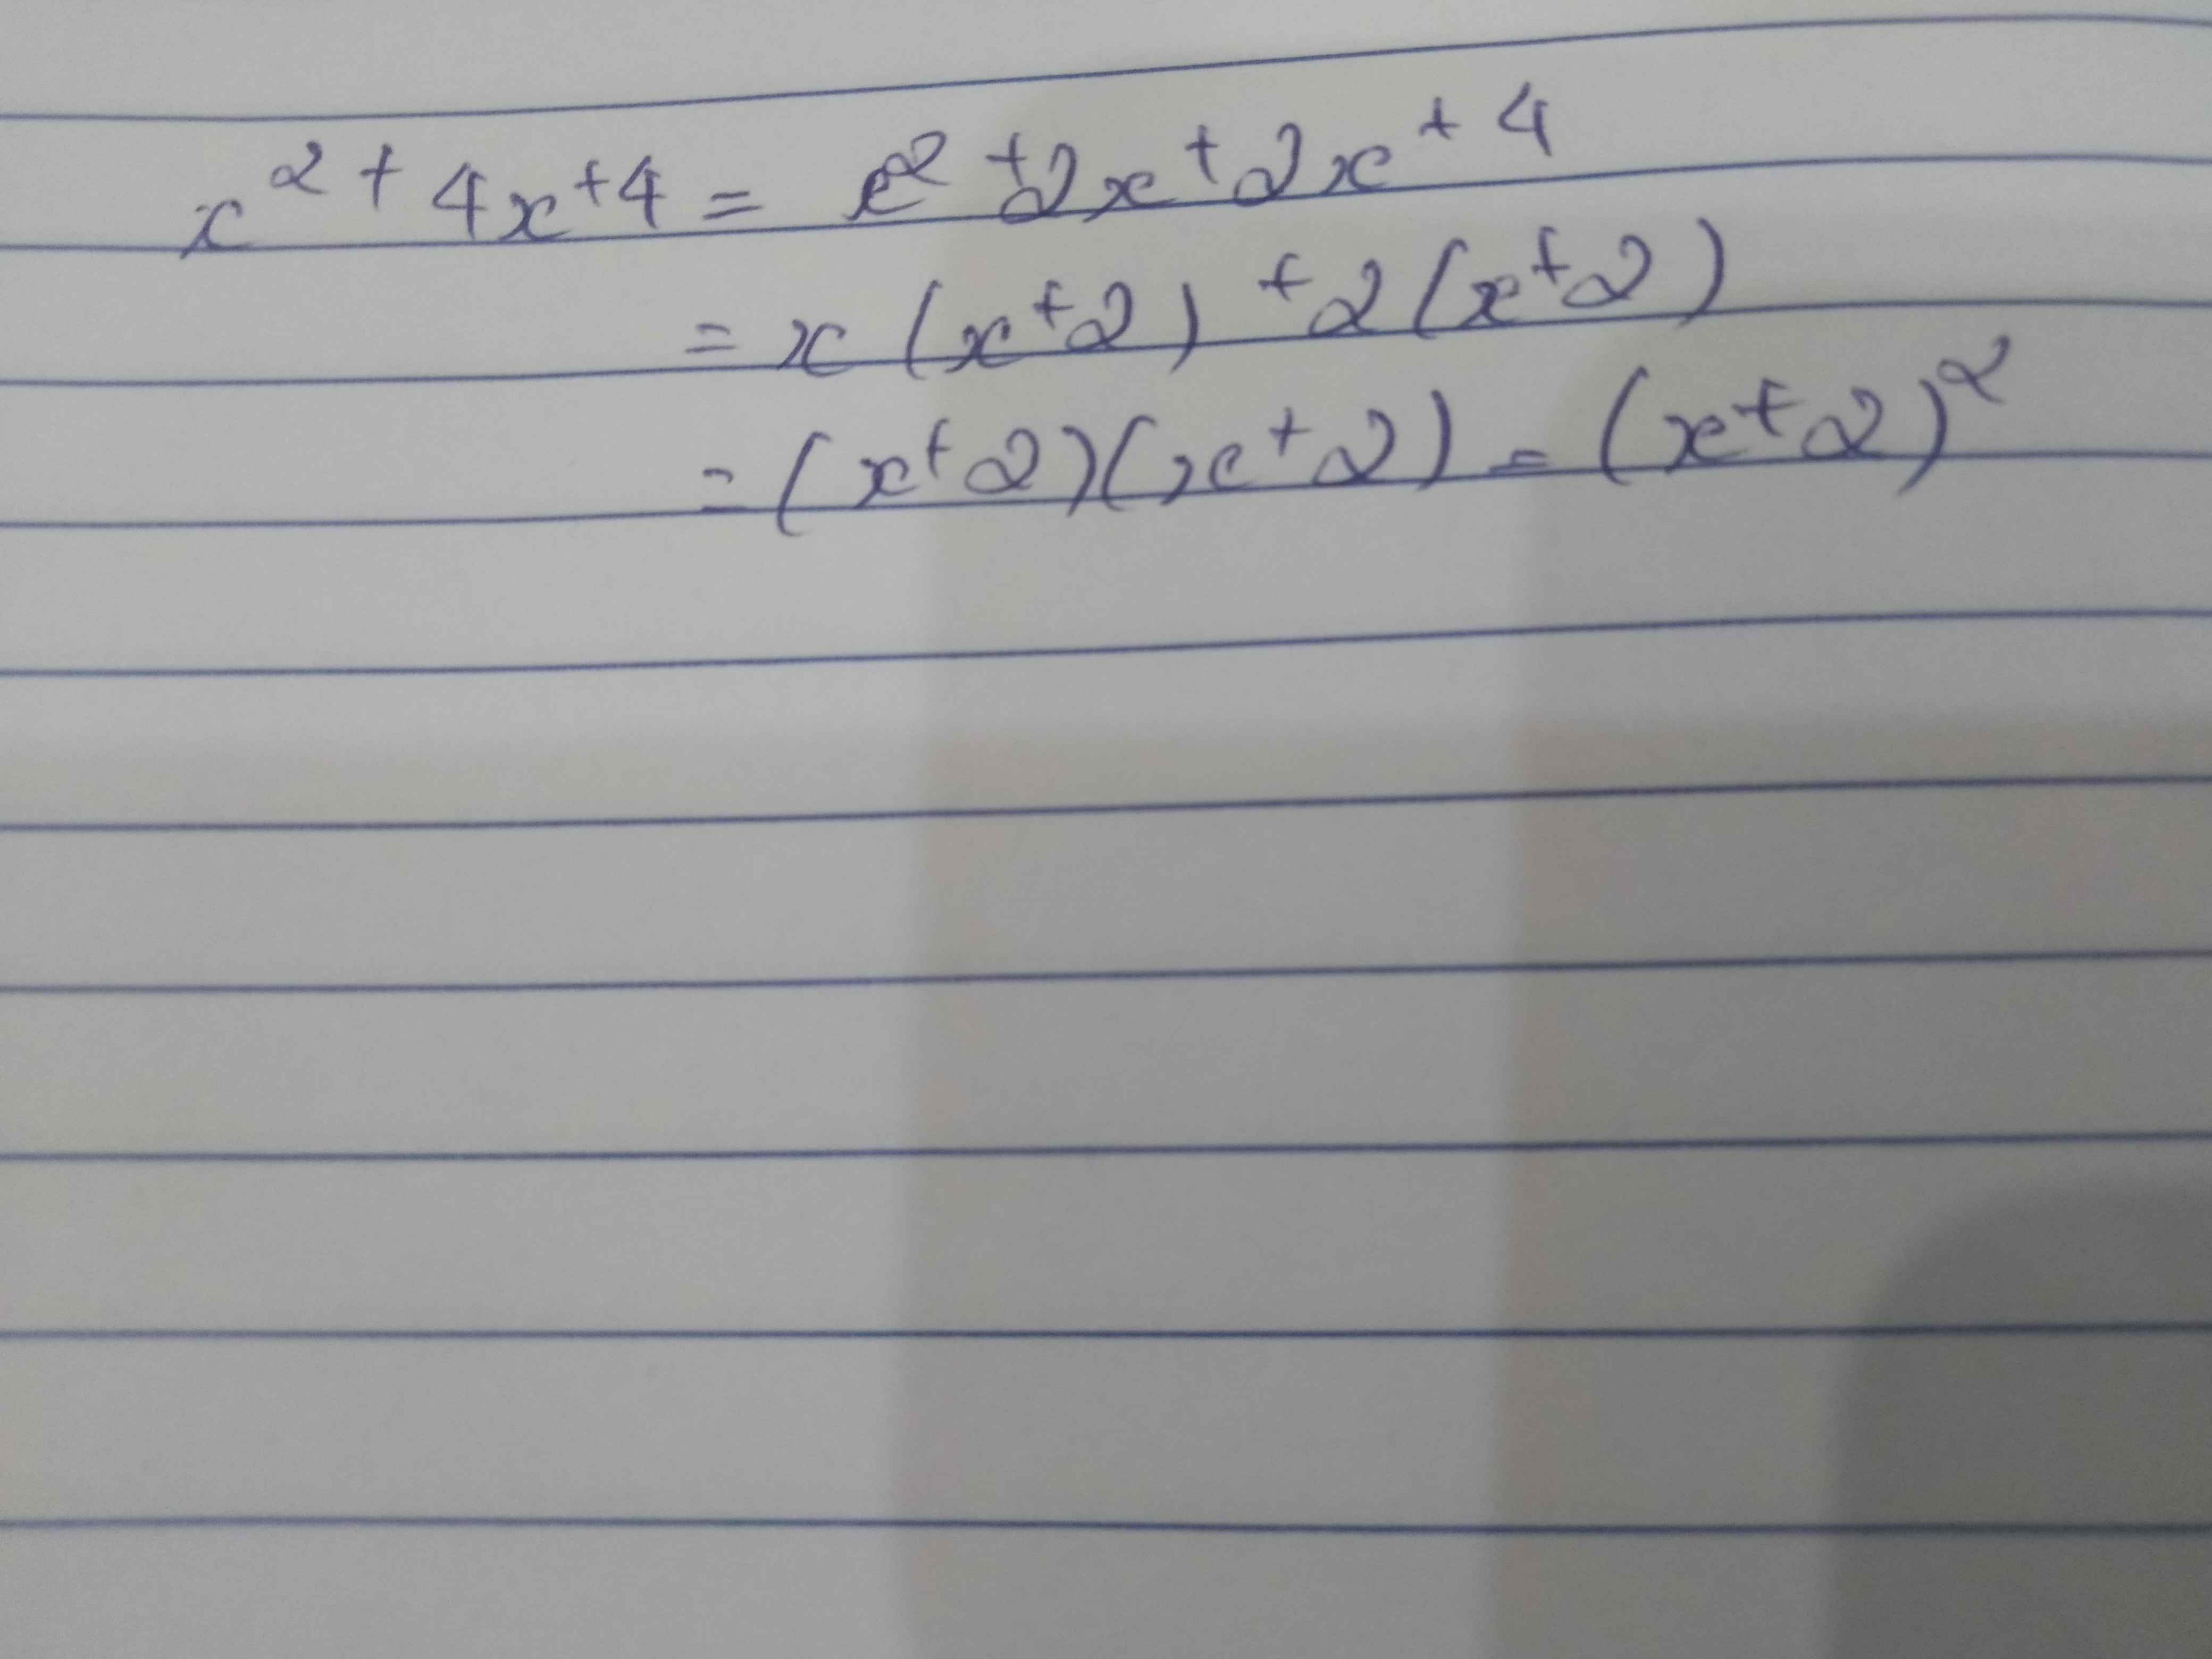 x² + 4x + 4 = x² + 2x + 2x + 4
= x (x+2) + 2 (x+2)
= (x+2)(x+2) = (x+2)²